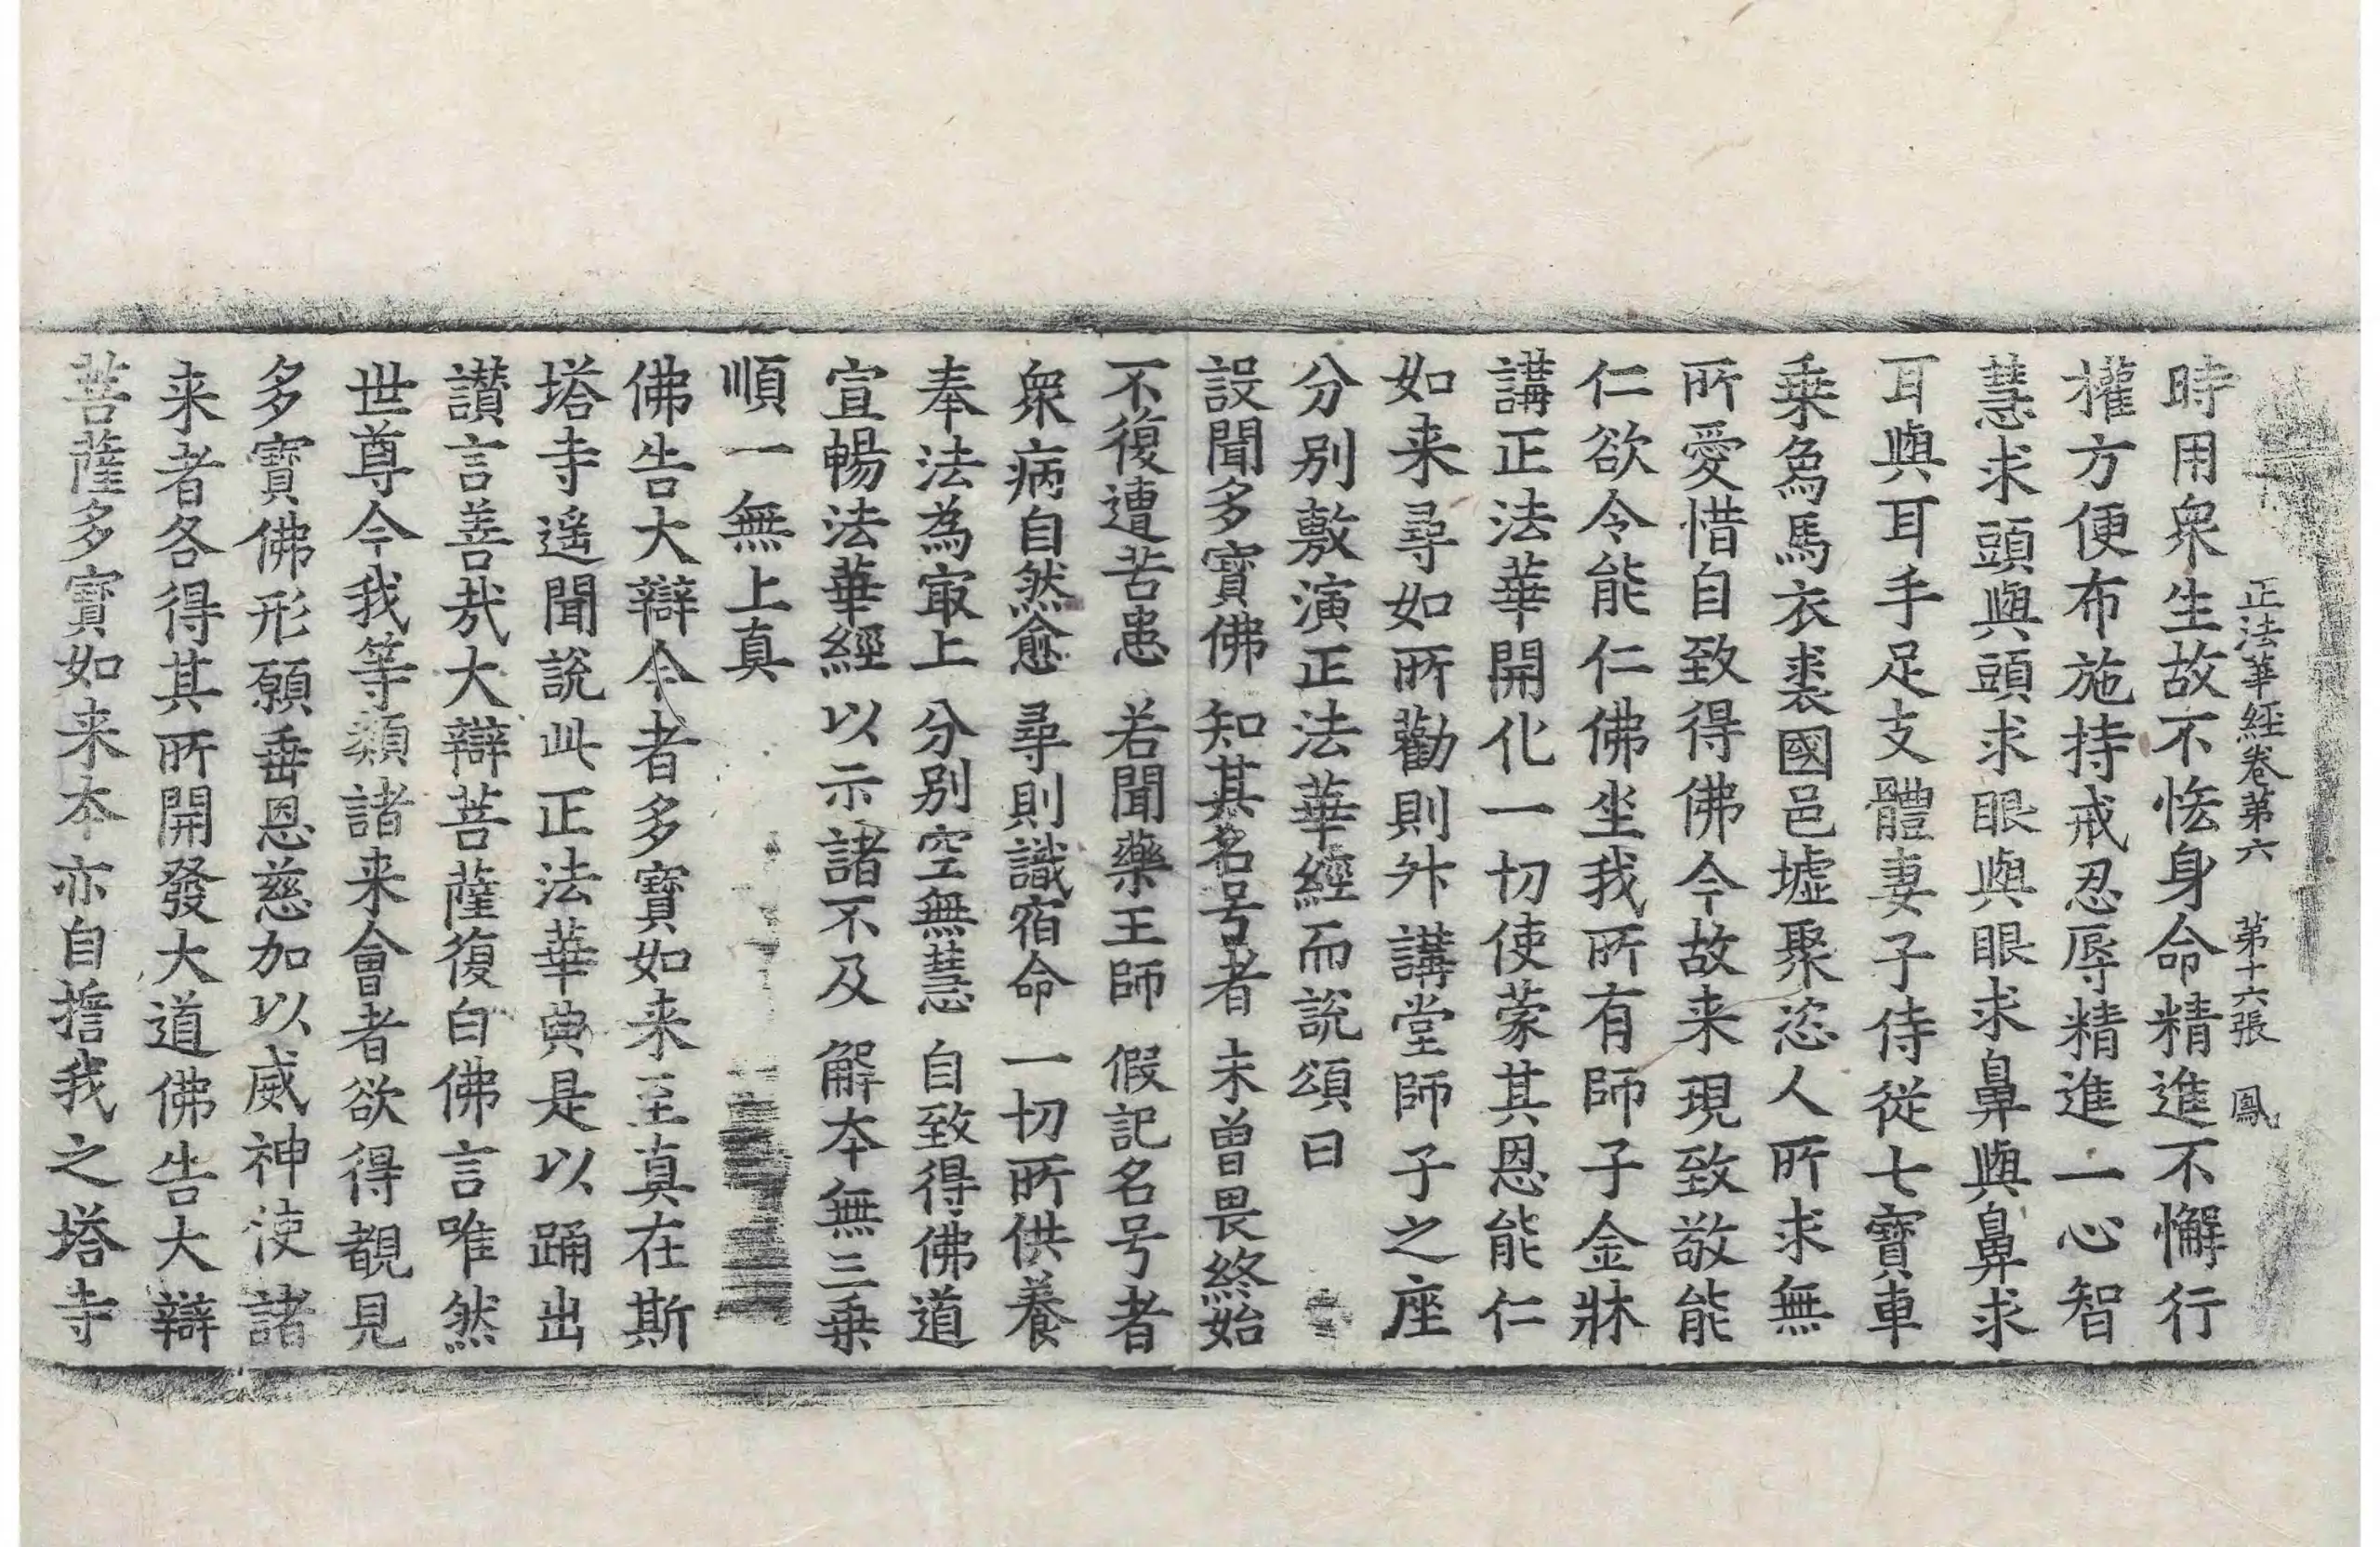 正法華經卷第六　第十六張　鳳
時用衆生故不悋身命精進不懈行
權方便布施持戒忍辱精進一心智
慧求頭與頭求眼與眼求鼻與鼻求
耳與耳手足支體妻子侍從七寶車
乗𤉢馬衣裘國邑墟聚恣人所求無
所愛惜自致得佛今故来現致敬能
仁欲令能仁佛坐我所有師子金牀
講正法華開化一切使蒙其恩能仁
如来尋如所勸則外講堂師子之座
分别敷演正法華經而說頌曰
設聞多寶佛　知其名号者　未曾畏終始
不復遭苦患　若聞藥王師　假記名号者
衆病自然愈　尋則識宿命　一切所供養
奉法為㝡上　分别空無慧　自致得佛道
宣暢法華經　以示諸不及　解本無三乗
順一無上真
佛告大辯今者多寶如来至真在斯
塔寺遥聞說此正法華典是以踊出
讚言善㢤大辯菩薩復白佛言唯然
世尊今我等類諸来會者欲得覩見
多寶佛形願垂恩慈加以威神使諸
来者各得其所開發大道佛告大辯
菩薩多寶如来本亦自擔我之塔寺